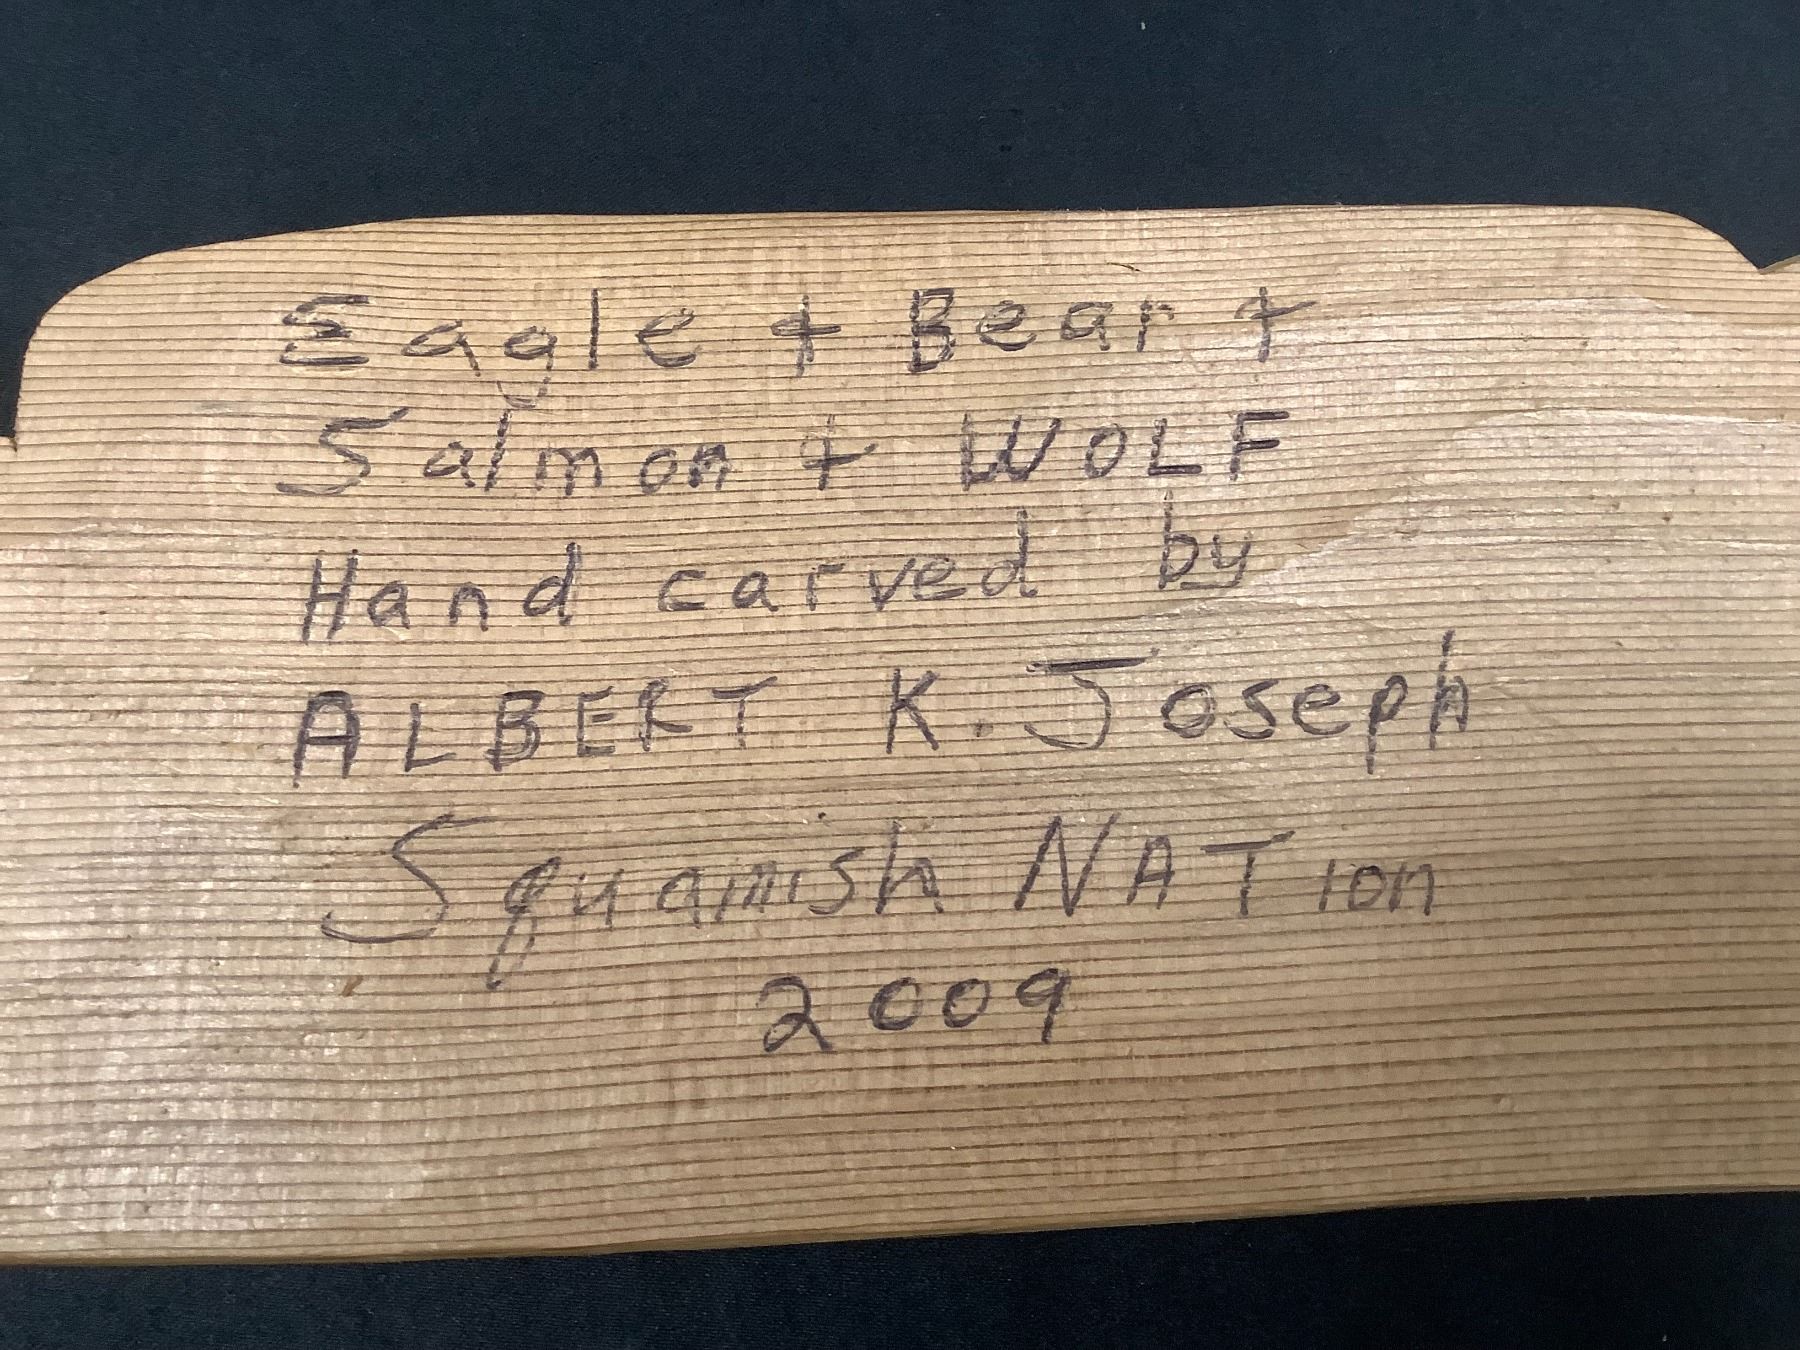 Eagle + Bear +
Salmon + WOLF
Hand carved by
ALBERT K. Joseph
Squamish NATion
2009